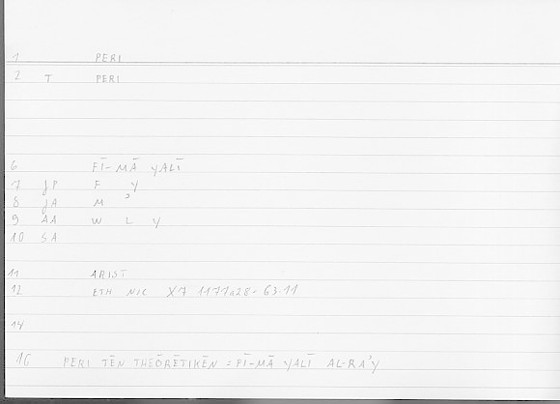 1 PERI
2 T PERI
6 FĪ-MĀ YALĪ
7 JP F Y
8 JA M ʾ
9 AA W L Y
10 SA
11 ARIST
12 ETH NIC X7 1177a28 = 63.11
14
16 PERI TĒN THEŌRĒTIKĒN = FĪ-MĀ YALĪ AL-RAʾY